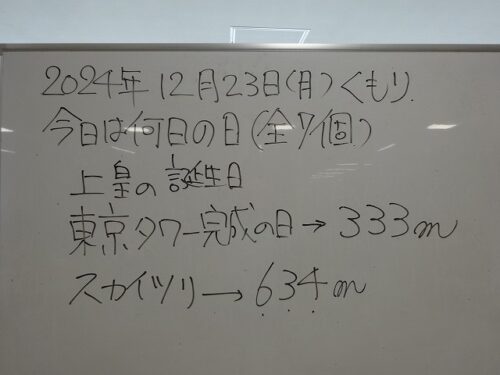 2024年 12月23日(月) くもり
今日は何日の日(全7個)
上皇の誕生日
東京タワー完成の日→333m
スカイツリー→634m